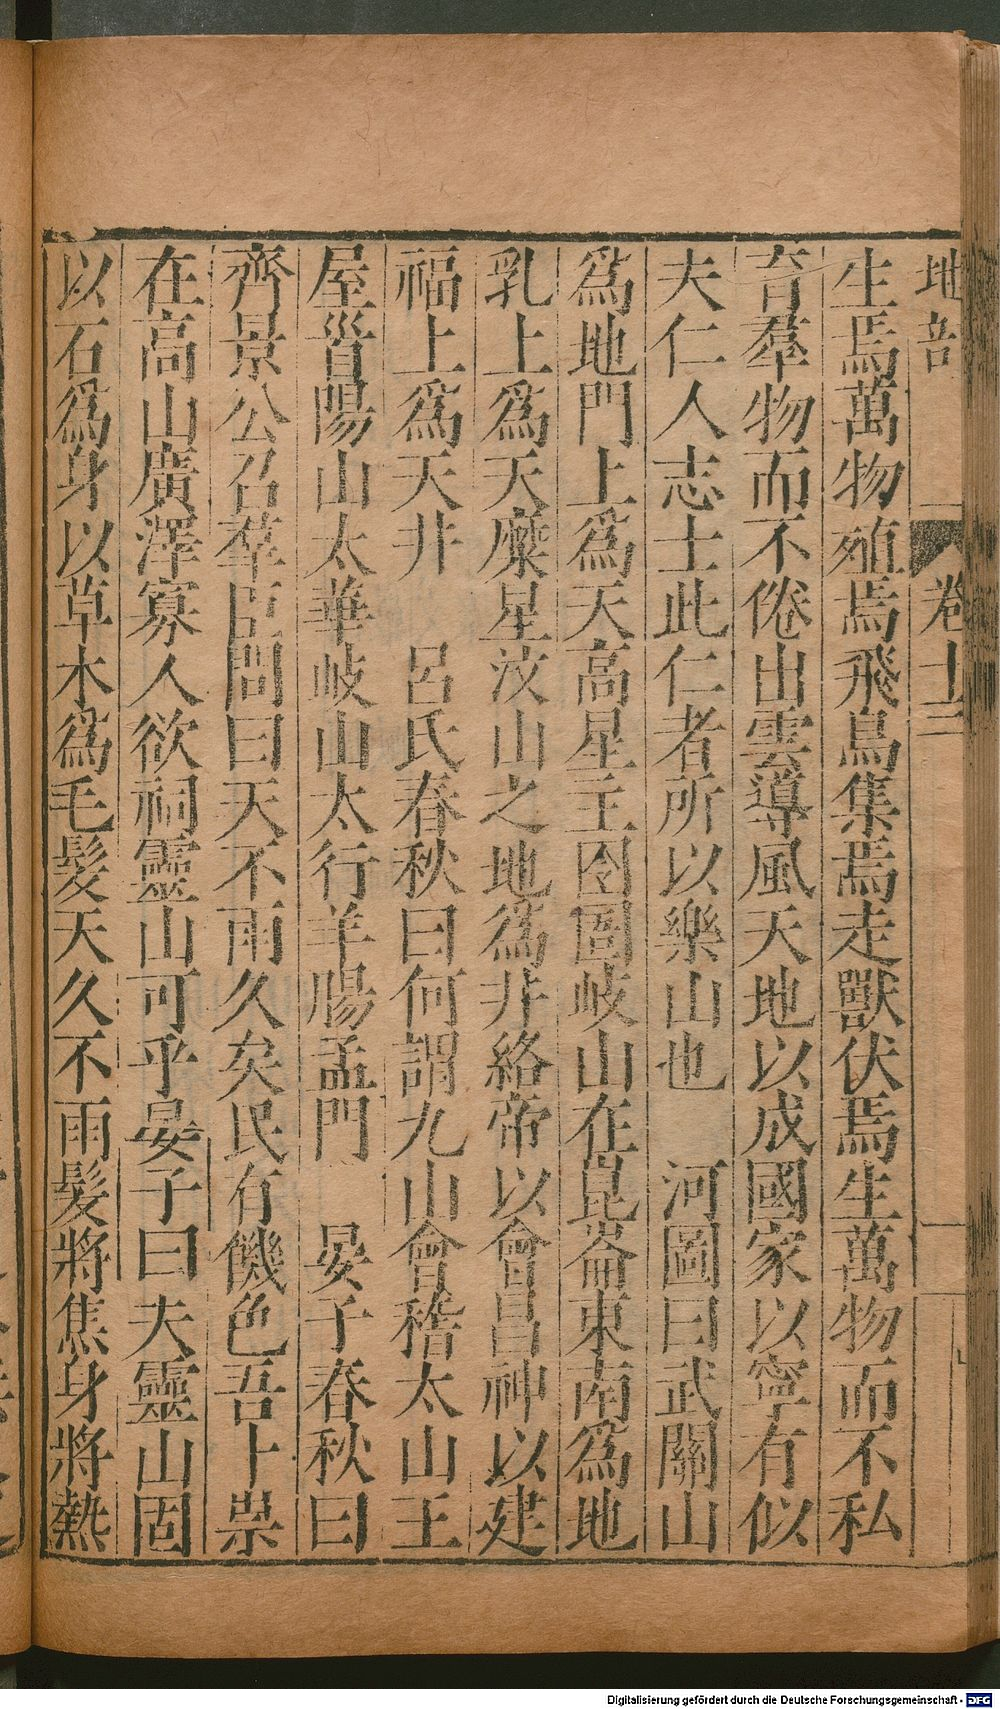 地部 卷十三
生焉萬物殖焉飛鳥集焉走獸伏焉生萬物而不私
育羣物而不倦出雲導風天地以成國家以寧有似
夫仁人志士此仁者所以樂山也 河圖曰武關山
爲地門上爲天高星主囹圄岐山在崑崙東南爲地
乳上爲天糜星汶山之地爲井絡帝以會昌神以建
福上爲天井 呂氏春秋曰何謂九山會稽太山王
屋首陽山太華岐山太行羊腸孟門 晏子春秋曰
齊景公召羣臣問曰天不雨久矣民有饑色吾卜祟
在高山廣澤寡人欲祠靈山可乎晏子曰夫靈山固
以石爲身以草木爲毛髮天久不雨髮將焦身將熱
Digitalisierung gefördert durch die Deutsche Forschungsgemeinschaft - DFG